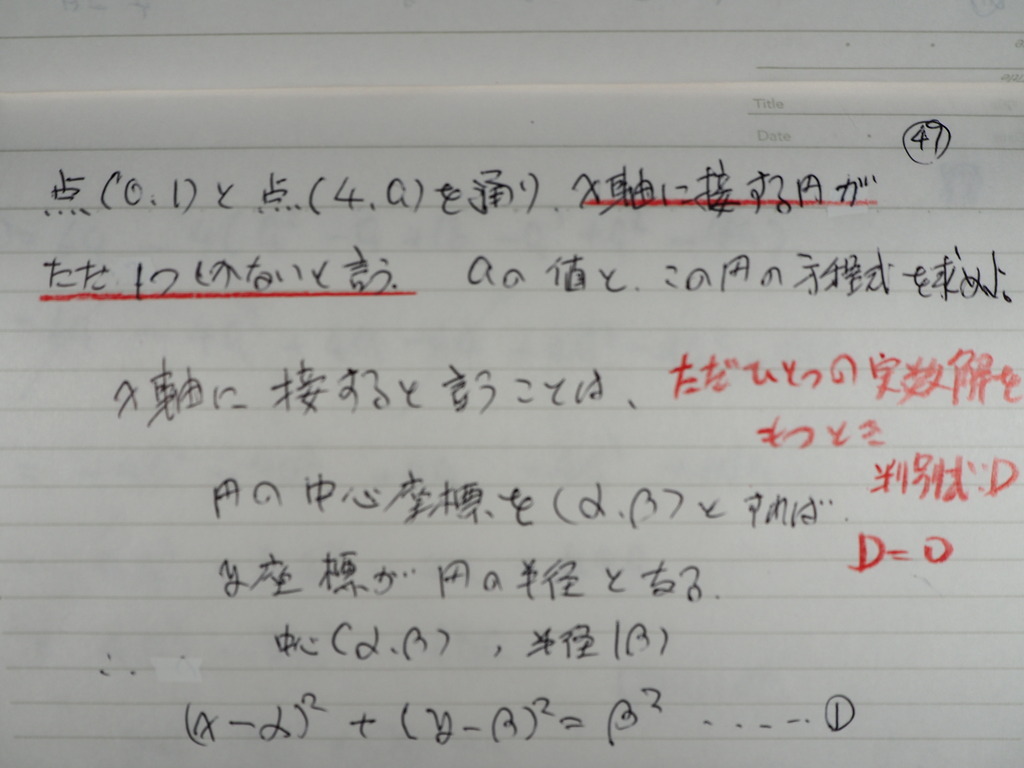 Title
Date
㊾
点(0.1)と点(4.a)を通り.x軸に接する円が
ただ1つしかないと言う.aの値と.この円の方程式を求めよ。
x軸に接すると言うことは、
ただひとつの実数解を
もつとき
判別式:D
D=0
円の中心座標を(α.β)とすれば.
y座標が円の半径となる.
∴ 中心(α.β),半径|β|
(x-α)²+(y-β)²=β²-----①